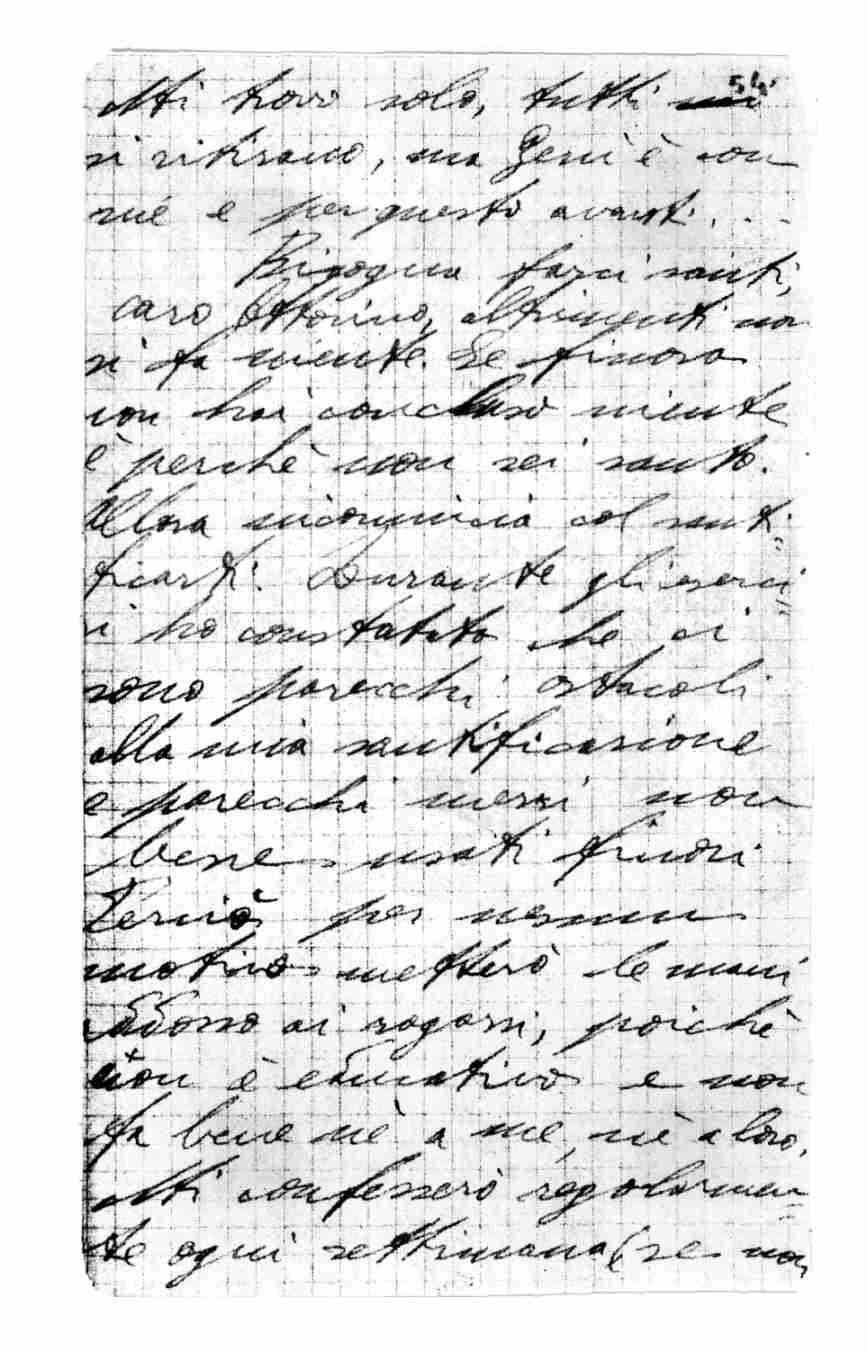 54
Mi trovo solo, tutti
si ritirano, ma Gesù è con
me e per questo avanti...
Bisogna farci santi,
caro Ottorino, altrimenti non
si fa niente. Se finora
non hai concluso niente
è perchè non sei santo.
Allora incomincia col santi=
ficarti. Durante gli eserci=
zi ho constatato che ci
sono parecchi ostacoli
alla mia santificazione
e parecchi mezzi non
bene usati finora.
Perciò per nessun
motivo metterò le mani
addosso ai ragazzi, poichè
non è educativo e non
fa bene nè a me, nè a loro.
Mi confesserò regolarmen=
te ogni settimana (se non